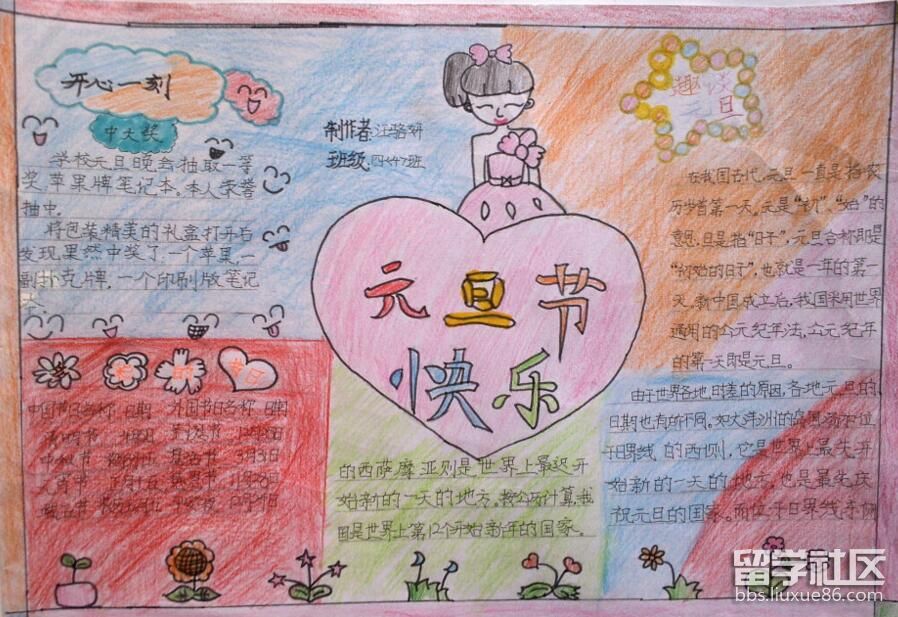 开心一刻
中大奖
学校元旦晚会抽取一等
奖,苹果牌笔记本。本人荣誉
抽中。
将包装精美的礼盒打开后
发现果然中奖了,一个苹果,一
副扑克牌,一个印刷版笔记
本。
制作者:汪骆妍
班级:四〈4〉班
元旦节
快乐
趣谈
元旦
在我国古代,元旦一直是指农
历岁首第一天。元是“初”、“始”的
意思,旦是指“日子”,元旦合称即是
“初始的日子”,也就是一年的第一
天。新中国成立后,我国采用世界
通用的公元纪年法,公元纪年
的第一天即是元旦。
由于世界各地日差的原因,各地元旦的
日期也有所不同。如大洋洲的岛国汤加位
于日界线的西侧,它是世界上最先开
始新的一天的地方,也是最先庆
祝元旦的国家。而位于日界线东侧
的西萨摩亚则是世界上最迟开
始新的一天的地方。按公历计算,我
国是世界上第12个开始新年的国家。
中国节日名称 日期 外国节日名称 日期
清明节
中秋节
元宵节
留学社区
bbs.liuxue86.com